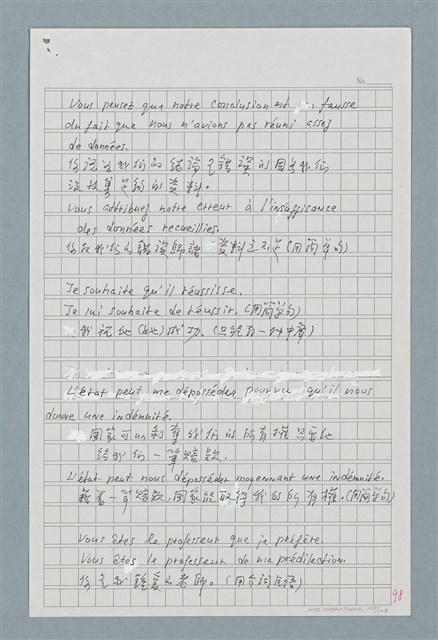 No.
Vous pensez que notre conclusion est fausse
du fait que nous n'avions pas réuni assez
de données.
你認為我們的結論是錯誤的因為我们
沒收集足夠的資料。
Vous attribuez notre erreur à l'insuffisance
des données recueillies.
你把我們的錯誤歸諸資料之不足(用簡單句)
Je souhaite qu'il réussisse.
Je lui souhaite de réussir. (用簡單句)
我祝他(她)成功。(只能有一种中譯)
L'état peut me déposséder pourvu qu'il nous
donne une indémnité.
國家可以剥奪我們的所有權只要他
給我們一筆賠款。
L'état peut nous déposséder moyennant une indémnité.
藉着一筆賠款,國家能取得我的所有權。(用簡單句)
Vous êtes le professeur que je préfère.
Vous êtes le professeur de ma prédilection.
你是我鍾爱的老師。(用介詞片語)
98